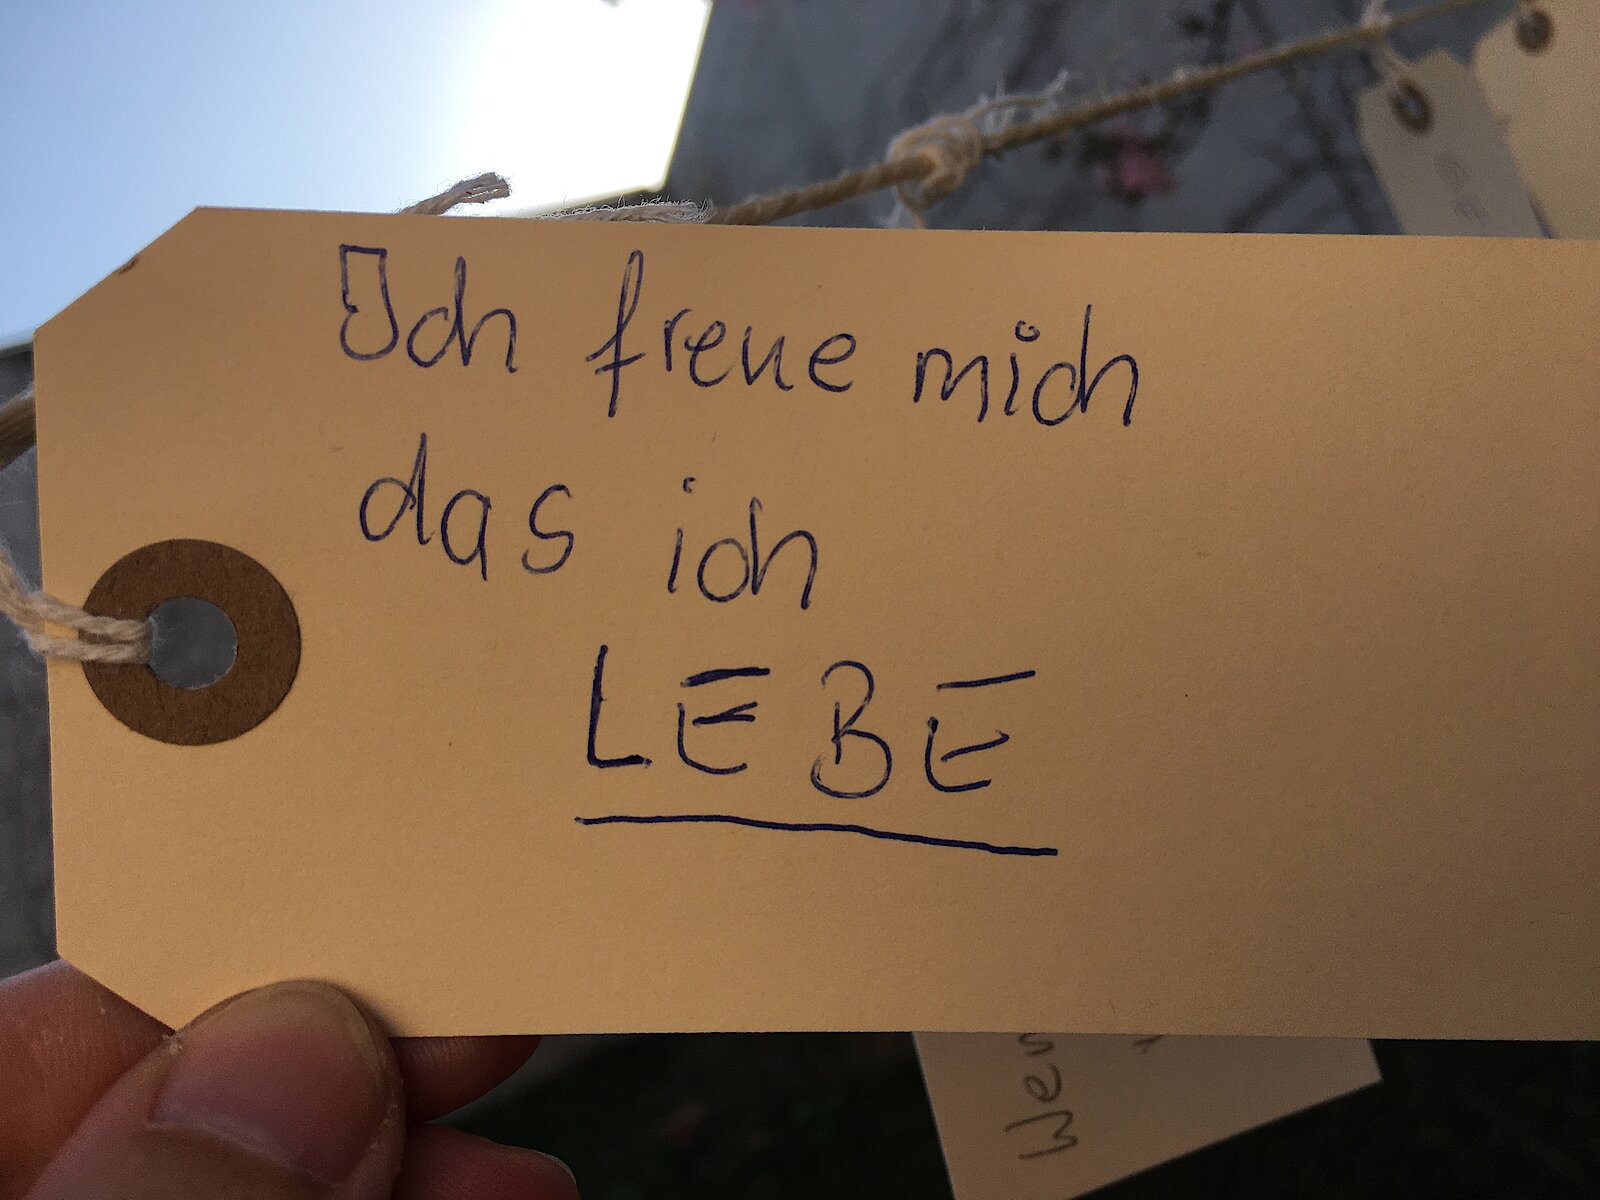 Ich freue mich
das ich
LEBE